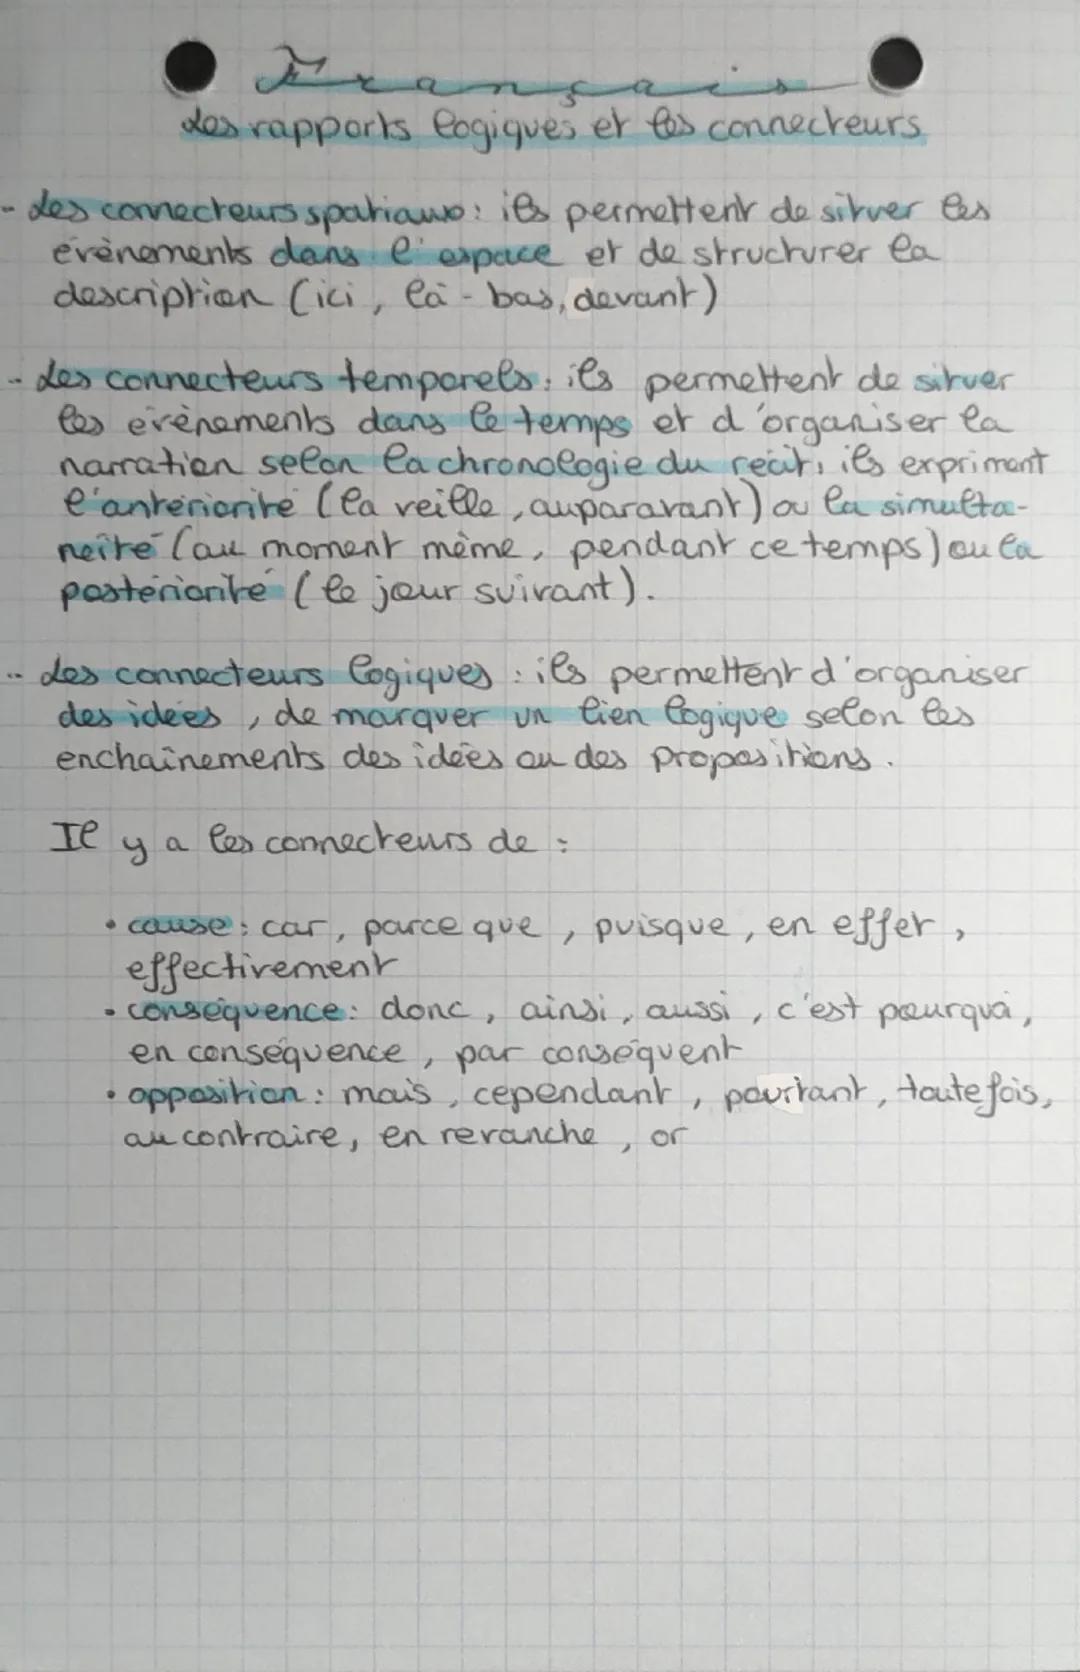 Français
Les rapports logiques et les connecteurs
- Les connecteurs spatiaux : ils permettent de situer les
évènements dans l'espace et de structurer la
description (ici, là-bas, devant)
- Les connecteurs temporels : ils permettent de situer
les évènements dans le temps et d'organiser la
narration selon la chronologie du récit, ils expriment
l'antériorité (la veille, auparavant) ou la simulta-
néité (au moment même, pendant ce temps) ou la
postériorité (le jour suivant).
- Les connecteurs logiques : ils permettent d'organiser
des idées, de marquer un lien logique selon les
enchaînements des idées ou des propositions.
Il y a les connecteurs de :
• cause : car, parce que, puisque, en effet,
effectivement
• conséquence : donc, ainsi, aussi, c'est pourquoi,
en conséquence, par conséquent
• opposition : mais, cependant, pourtant, toutefois,
au contraire, en revanche, or